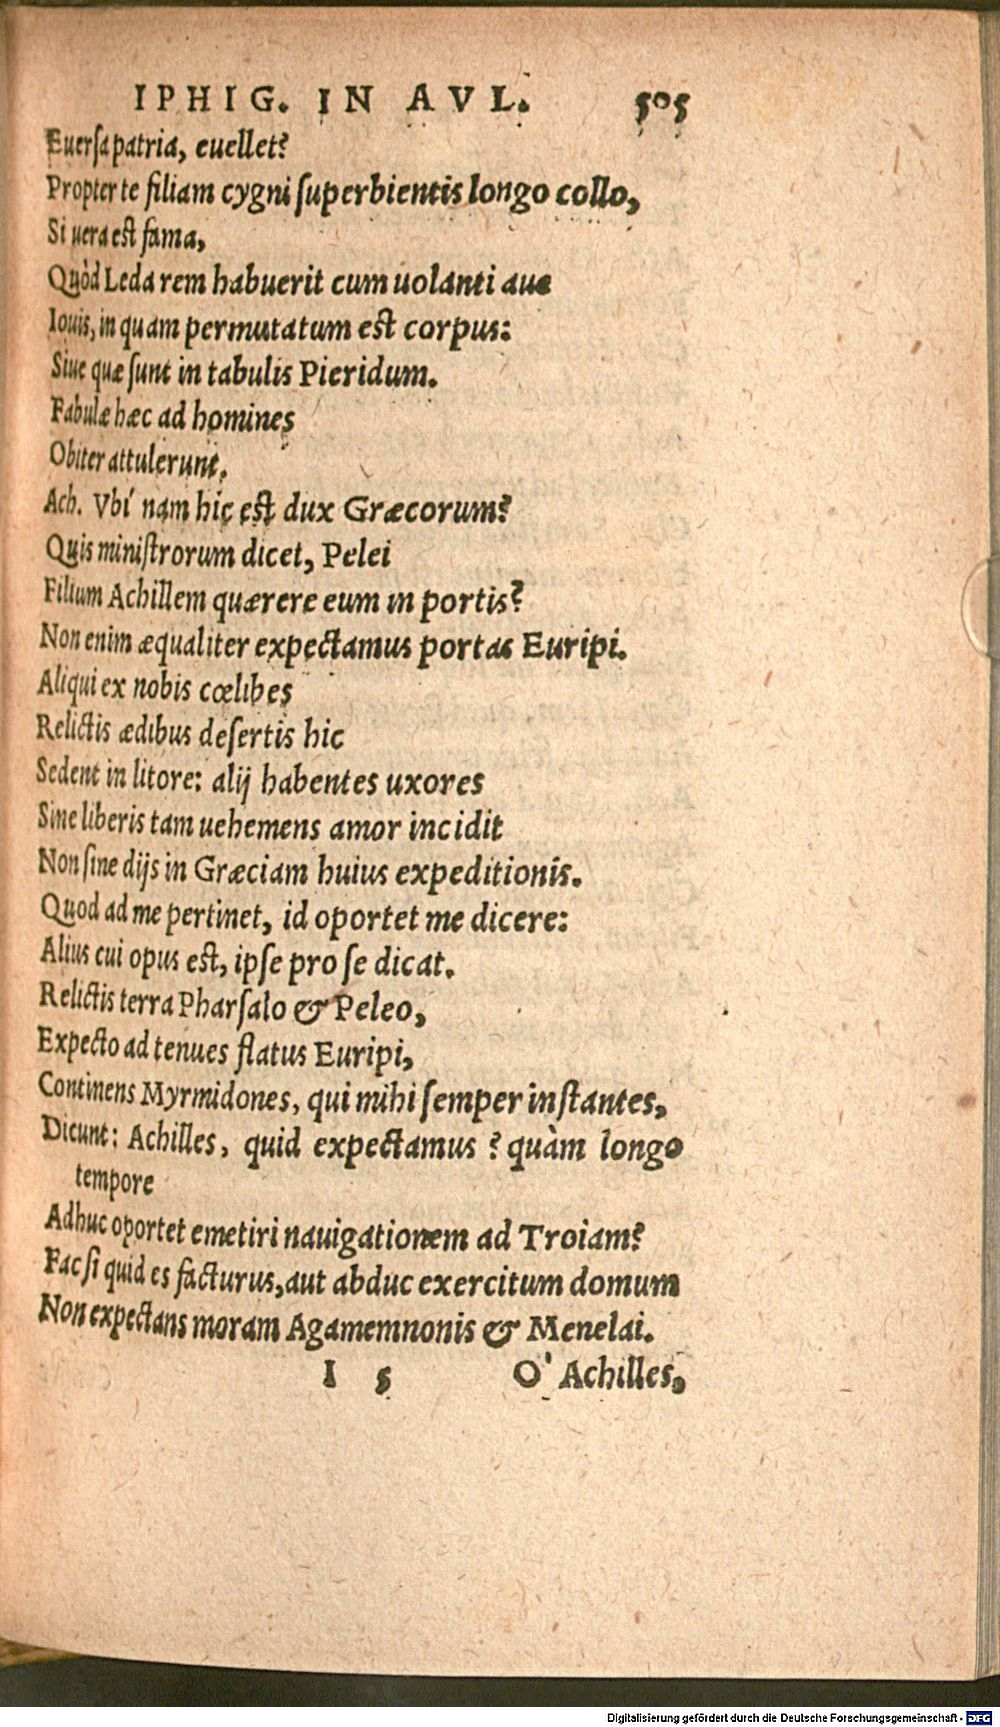 IPHIG. IN AVL. 505
Euersa patria, euellet?
Propter te filiam cygni ſuperbientis longo collo,
Si uera eſt fama,
Quòd Leda rem habuerit cum uolanti aue
Iouis, in quam permutatum eſt corpus:
Siue quæ ſunt in tabulis Pieridum.
Fabulæ hæc ad homines
Obiter attulerunt.
Ach. Vbi´ nam hic eſt dux Græcorum?
Quis miniſtrorum dicet, Pelei
Filium Achillem quærere eum in portis?
Non enim æqualiter expectamus portas Euripi.
Aliqui ex nobis cœlibes
Relictis ædibus deſertis hic
Sedent in litore: alij habentes uxores
Sine liberis tam uehemens amor incidit
Non ſine dijs in Græciam huius expeditionis.
Quod ad me pertinet, id oportet me dicere:
Alius cui opus eſt, ipſe pro ſe dicat.
Relictis terra Pharſalo & Peleo,
Expecto ad tenues flatus Euripi,
Continens Myrmidones, qui mihi ſemper inſtantes,
Dicunt: Achilles, quid expectamus? quàm longo
tempore
Adhuc oportet emetiri nauigationem ad Troiam?
Fac ſi quid es facturus, aut abduc exercitum domum
Non expectans moram Agamemnonis & Menelai.
I 5 O' Achilles,
Digitalisierung gefördert durch die Deutsche Forschungsgemeinschaft - DFG